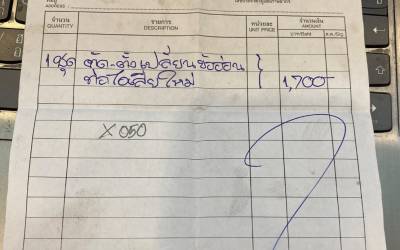 ที่อยู่
ADDRESS
จำนวน รายการ หน่วยละ จำนวนเงิน
QUANTITY DESCRIPTION UNIT PRICE บาท/Baht ส.ต./Stg.
1 ชุด ตัด-ตั้งเปลี่ยนข้ออ่อน
ท่อไอเสียใหม่ 1,700
X 050